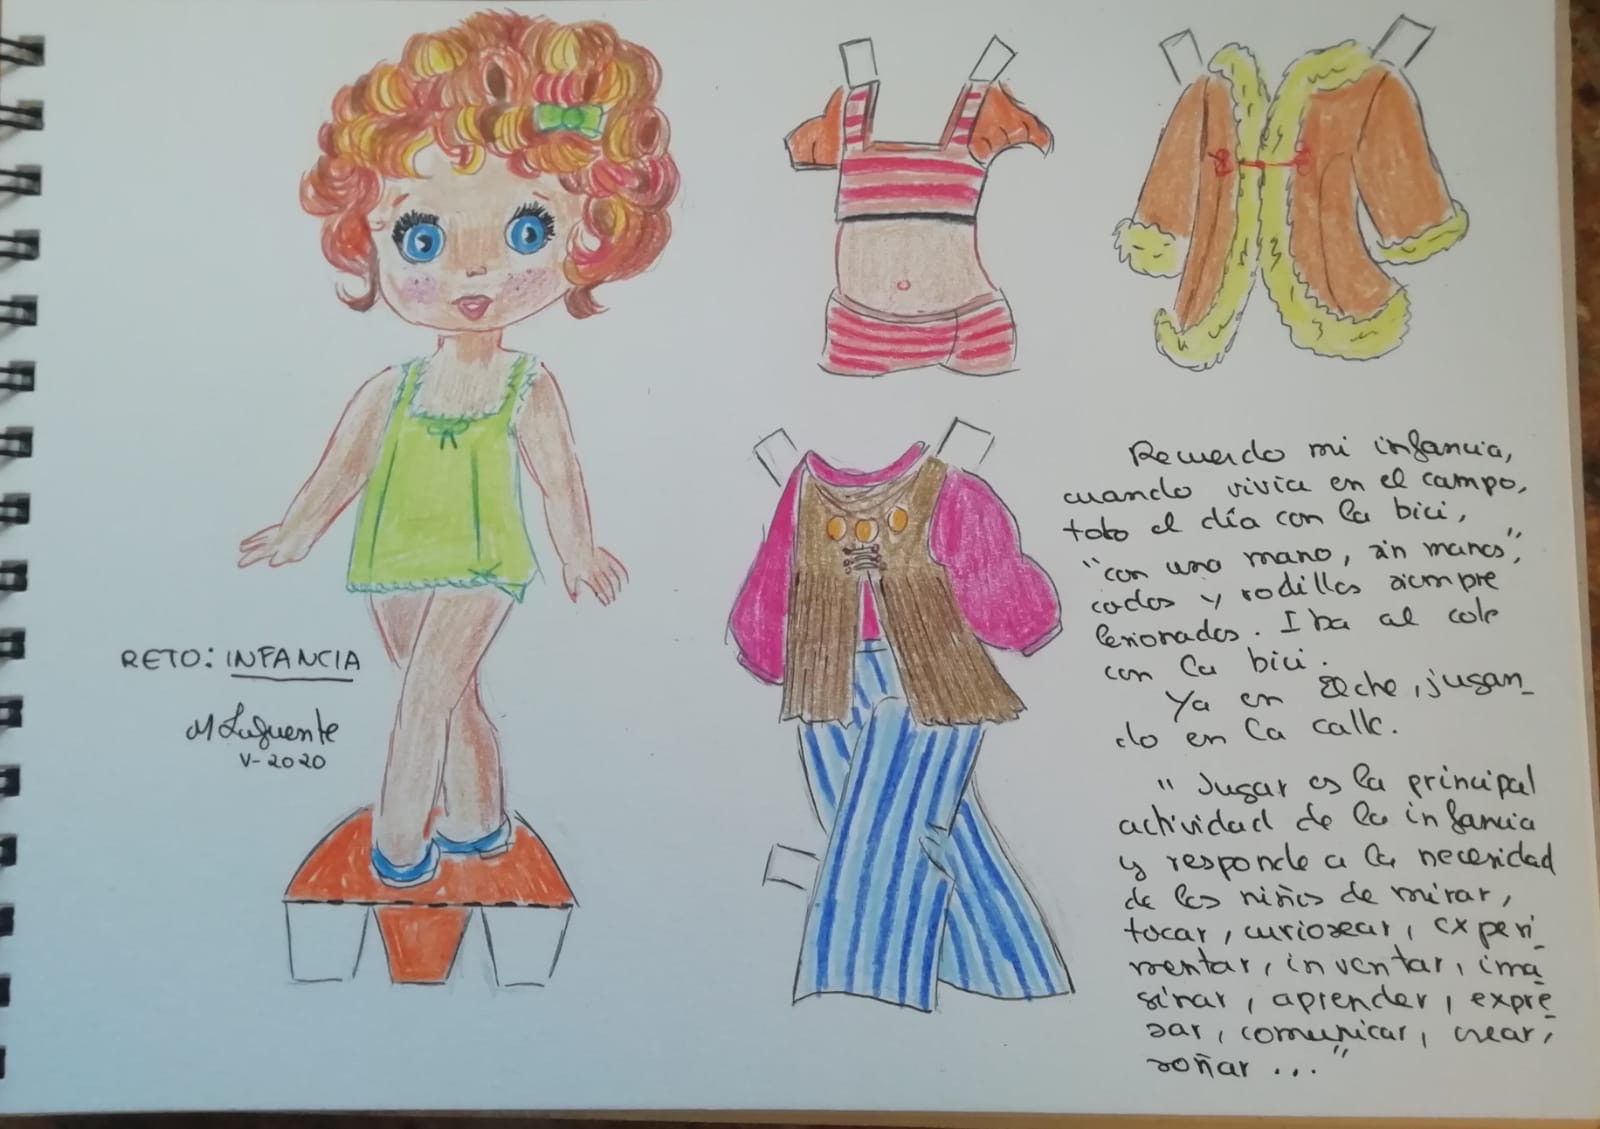 RETO: INFANCIA
M Lafuente
V-2020
Recuerdo mi infancia,
cuando vivía en el campo,
todo el día con la bici,
"con una mano, sin manos",
codos y rodillas siempre
lesionados. Iba al cole
con la bici.
Ya en Elche, jugan_
do en la calle.
"Jugar es la principal
actividad de la infancia
y responde a la necesidad
de los niños de mirar,
tocar, curiosear, experi_
mentar, inventar, ima_
ginar, aprender, expre_
sar, comunicar, crear,
soñar ..."